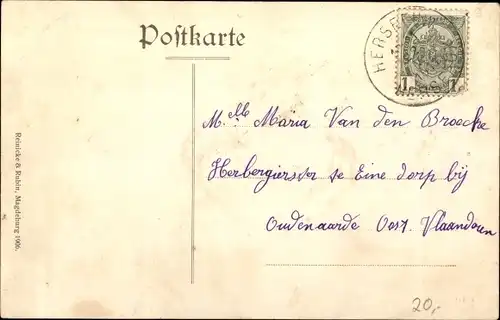 Postkarte
HERSE
1 1
Melle Maria Van den Broecke
Herbergierster te Eine dorp bij
Oudenaarde Oost. Vlaanderen
Reinicke & Rubin, Magdeburg 1906.
20,-